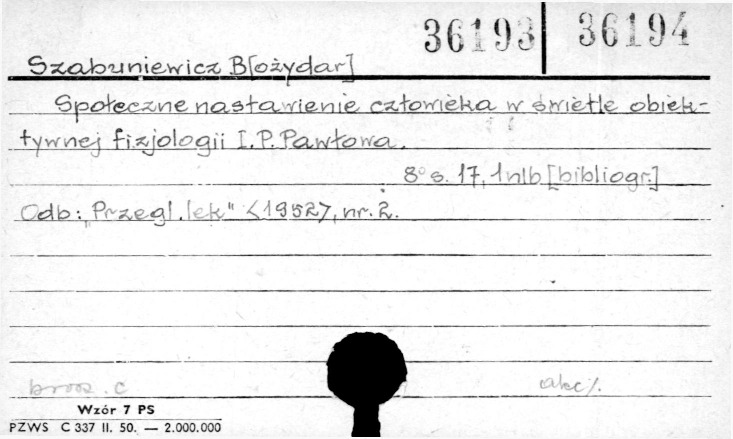 36193 | 36194
Szabuniewicz B[ożydar]
Społeczne nastawienie człowieka w świetle obiek-
tywnej fizjologii I.P. Pawłowa.
8° s. 17, 1 nlb [bibliogr.]
Odb: „Przegl. lek" <1952>, nr. 2.
brosz. c
akc/.
Wzór 7 PS
PZWS C 337 II. 50. — 2.000.000